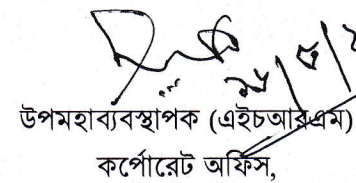 উপমহাব্যবস্থাপক (এইচআরএম)
কর্পোরেট অফিস,